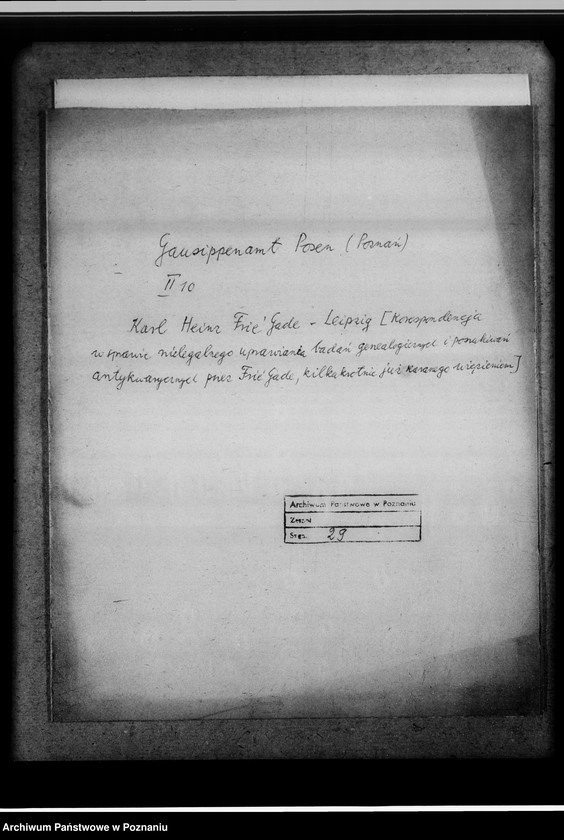 Gausippenamt Posen (Poznań)
II 10
Karl Heinz Frié Gade - Leipzig [Korespondencja
w sprawie nielegalnego uprawiania badań genealogicznych i poszukiwań
antykwarycznych przez Frié Gade, kilkakrotnie już karanego więzieniem]
Archiwum Państwowe w Poznaniu
Zespół
Sygn. 29
Archiwum Państwowe w Poznaniu